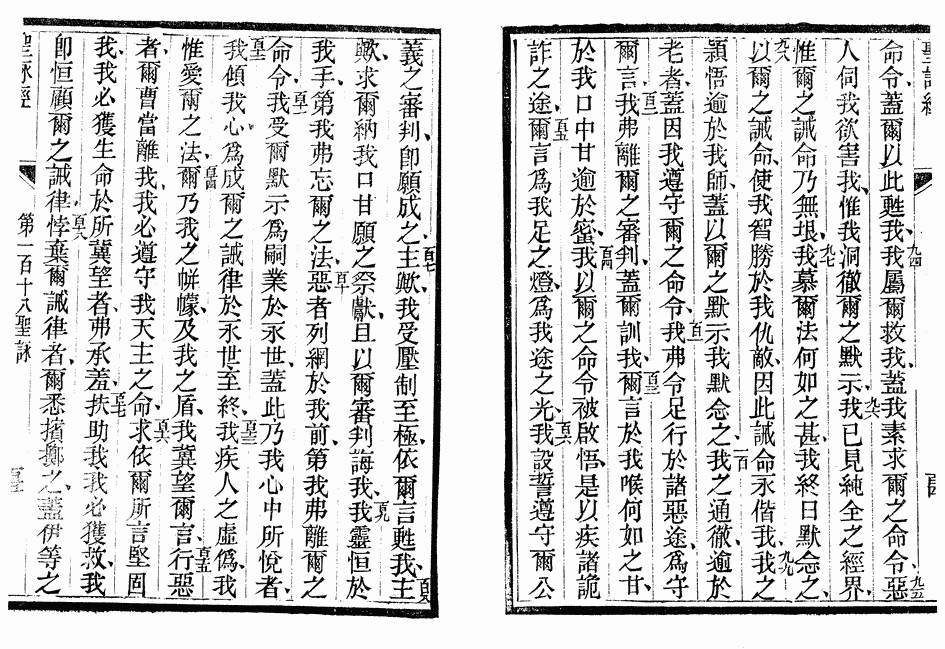 聖詠經
命令、蓋爾以此甦我、九四我屬爾、救我、蓋我素求爾之命令、九五惡
人伺我欲害我、惟我洞徹爾之默示、九六我已見純全之經界、
惟爾之誡命乃無垠、九七我慕爾法何如之甚、我終日默念之、
九八以爾之誡命、使我智勝於我仇敵、因此誡命永偕我、九九我之
穎悟逾於我師、蓋以爾之默示我默念之、一百我之通徹、逾於
老者、蓋因我遵守爾之命令、百一我弗令足行於諸惡途、為守
爾言、百二我弗離爾之審判、蓋爾訓我、百三爾言於我喉何如之甘、
於我口中甘逾於蜜、百四我以爾之命令被啟悟、是以疾諸詭
詐之途、百五爾言為我足之燈、為我途之光、百六我設誓遵守爾公
義之審判、即願成之、百七主歟、我受壓制至極、依爾言甦我、百八主
歟、求爾納我口甘願之祭獻、且以爾審判誨我、百九我靈恒於
我手、第我弗忘爾之法、百十惡者列網於我前、第我弗離爾之
命令、百十一我受爾默示為嗣業於永世、蓋此乃我心中所悅者、
百十二我傾我心、為成爾之誡律於永世至終、百十三我疾人之虛偽、我
惟愛爾之法、百十四爾乃我之帡幪、及我之盾、我冀望爾言、百十五行惡
者、爾曹當離我、我必遵守我天主之命、百十六求依爾所言堅固
我、我必獲生命、於所冀望者、弗承羞、百十七扶助我、我必獲救、我
即恒顧爾之誡律、百十八悖棄爾誡律者、爾悉擯擲之、蓋伊等之
聖詠經
第一百十八聖詠